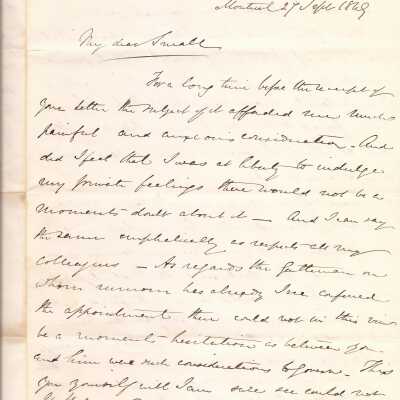 Montreal 27 Sept 1849
My dear Small
For a long time before the receipt of
your letter the subject of it afforded me much
painful and anxious consideration. And
did I feel that I was at liberty to indulge
my private feelings there would not be a
moments doubt about it — And I can say
the same emphatically as respects all my
colleagues — As regards the Gentleman on
whom rumour has already conferred
the appointment there could not in this view
be a moments hesitation as between you
and him were such considerations to govern. This
you yourself will I am sure see could not